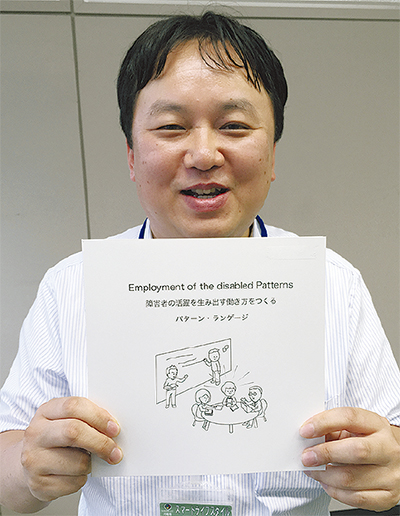 Employment of the disabled Patterns
障害者の活躍を生み出す働き方をつくる
パターン・ランゲージ
スマートライフスタイル